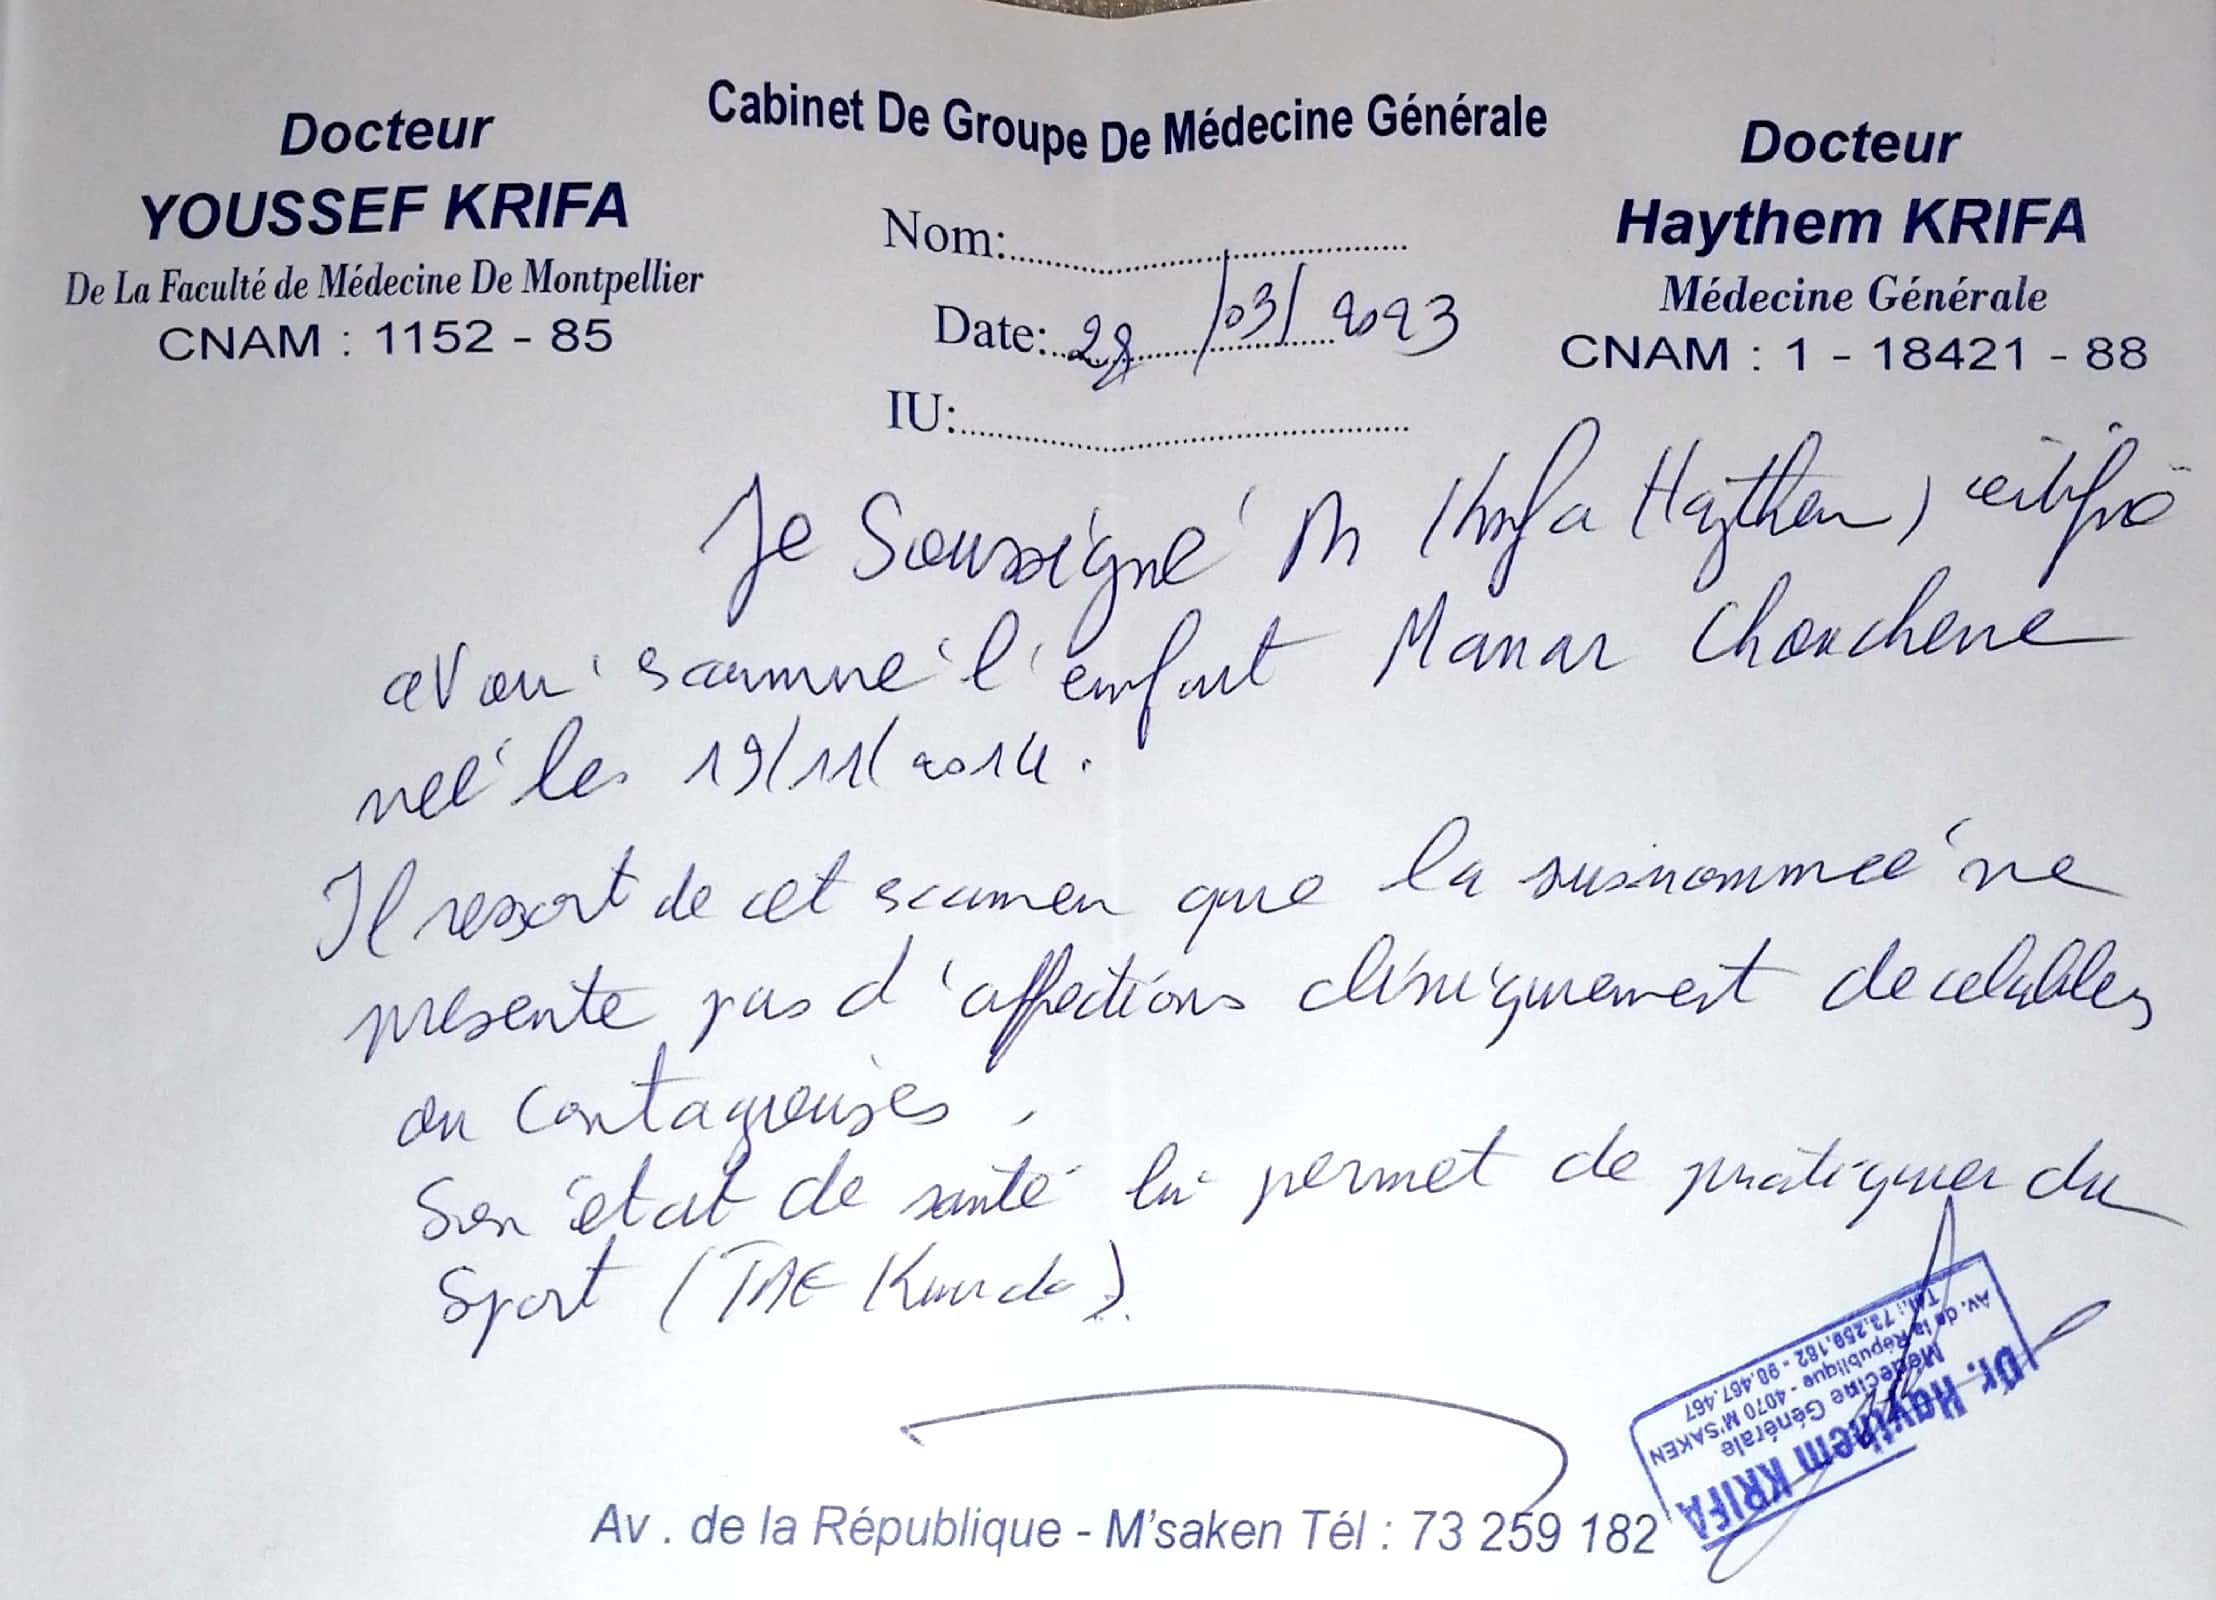 Cabinet De Groupe De Médecine Générale
Docteur
YOUSSEF KRIFA
De La Faculté de Médecine De Montpellier
CNAM : 1152 - 85
Docteur
Haythem KRIFA
Médecine Générale
CNAM : 1 - 18421 - 88
Nom:
Date: 28/03/2023
IU:
Je Soussigné Dr Krifa Haythem, certifie
avoir examiné l'enfant Manar Chouchene
neé le 19/11/2014.
Il ressort de cet examen que la susnommeé ne
presente pas d'affections cliniquement decelables
ou contagieuses,
Son état de santé lui permet de pratiquer du
Sport (TAE Kwondo).
Dr. Haythem KRIFA
Médecine Générale
Av. de la République - 4070 M'SAKEN
Tél.: 73.259.182 - 98.467.467
Av . de la République - M'saken Tél : 73 259 182